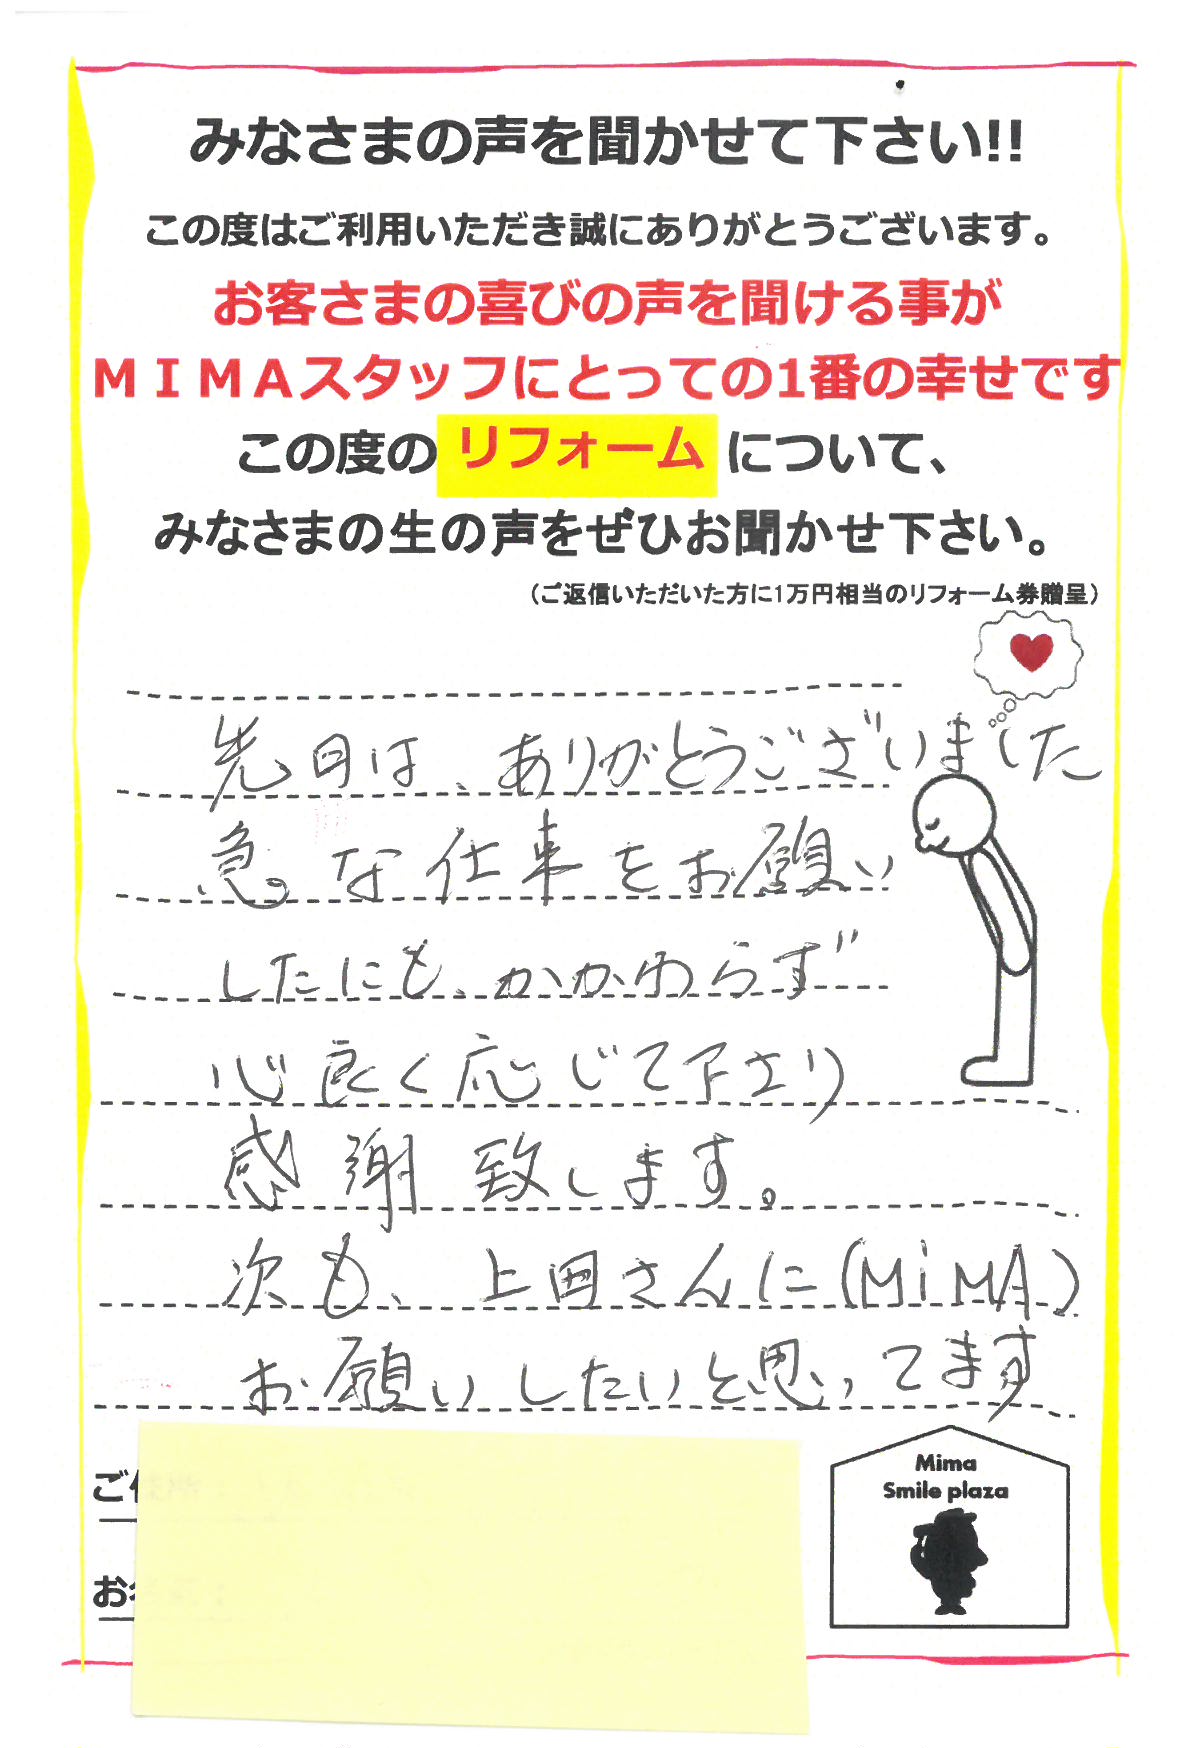 みなさまの声を聞かせて下さい!!
この度はご利用いただき誠にありがとうございます。
お客さまの喜びの声を聞ける事が
MIMAスタッフにとっての1番の幸せです
この度の リフォーム について、
みなさまの生の声をぜひお聞かせ下さい。
(ご返信いただいた方に1万円相当のリフォーム券贈呈)
先日は、ありがとうございました
急な仕事をお願い
したにも、かかわらず
心良く応じて下さり
感謝致します。
次も、上田さんに(MiMA)
お願いしたいと思ってます
ご
お
Mima
Smile plaza